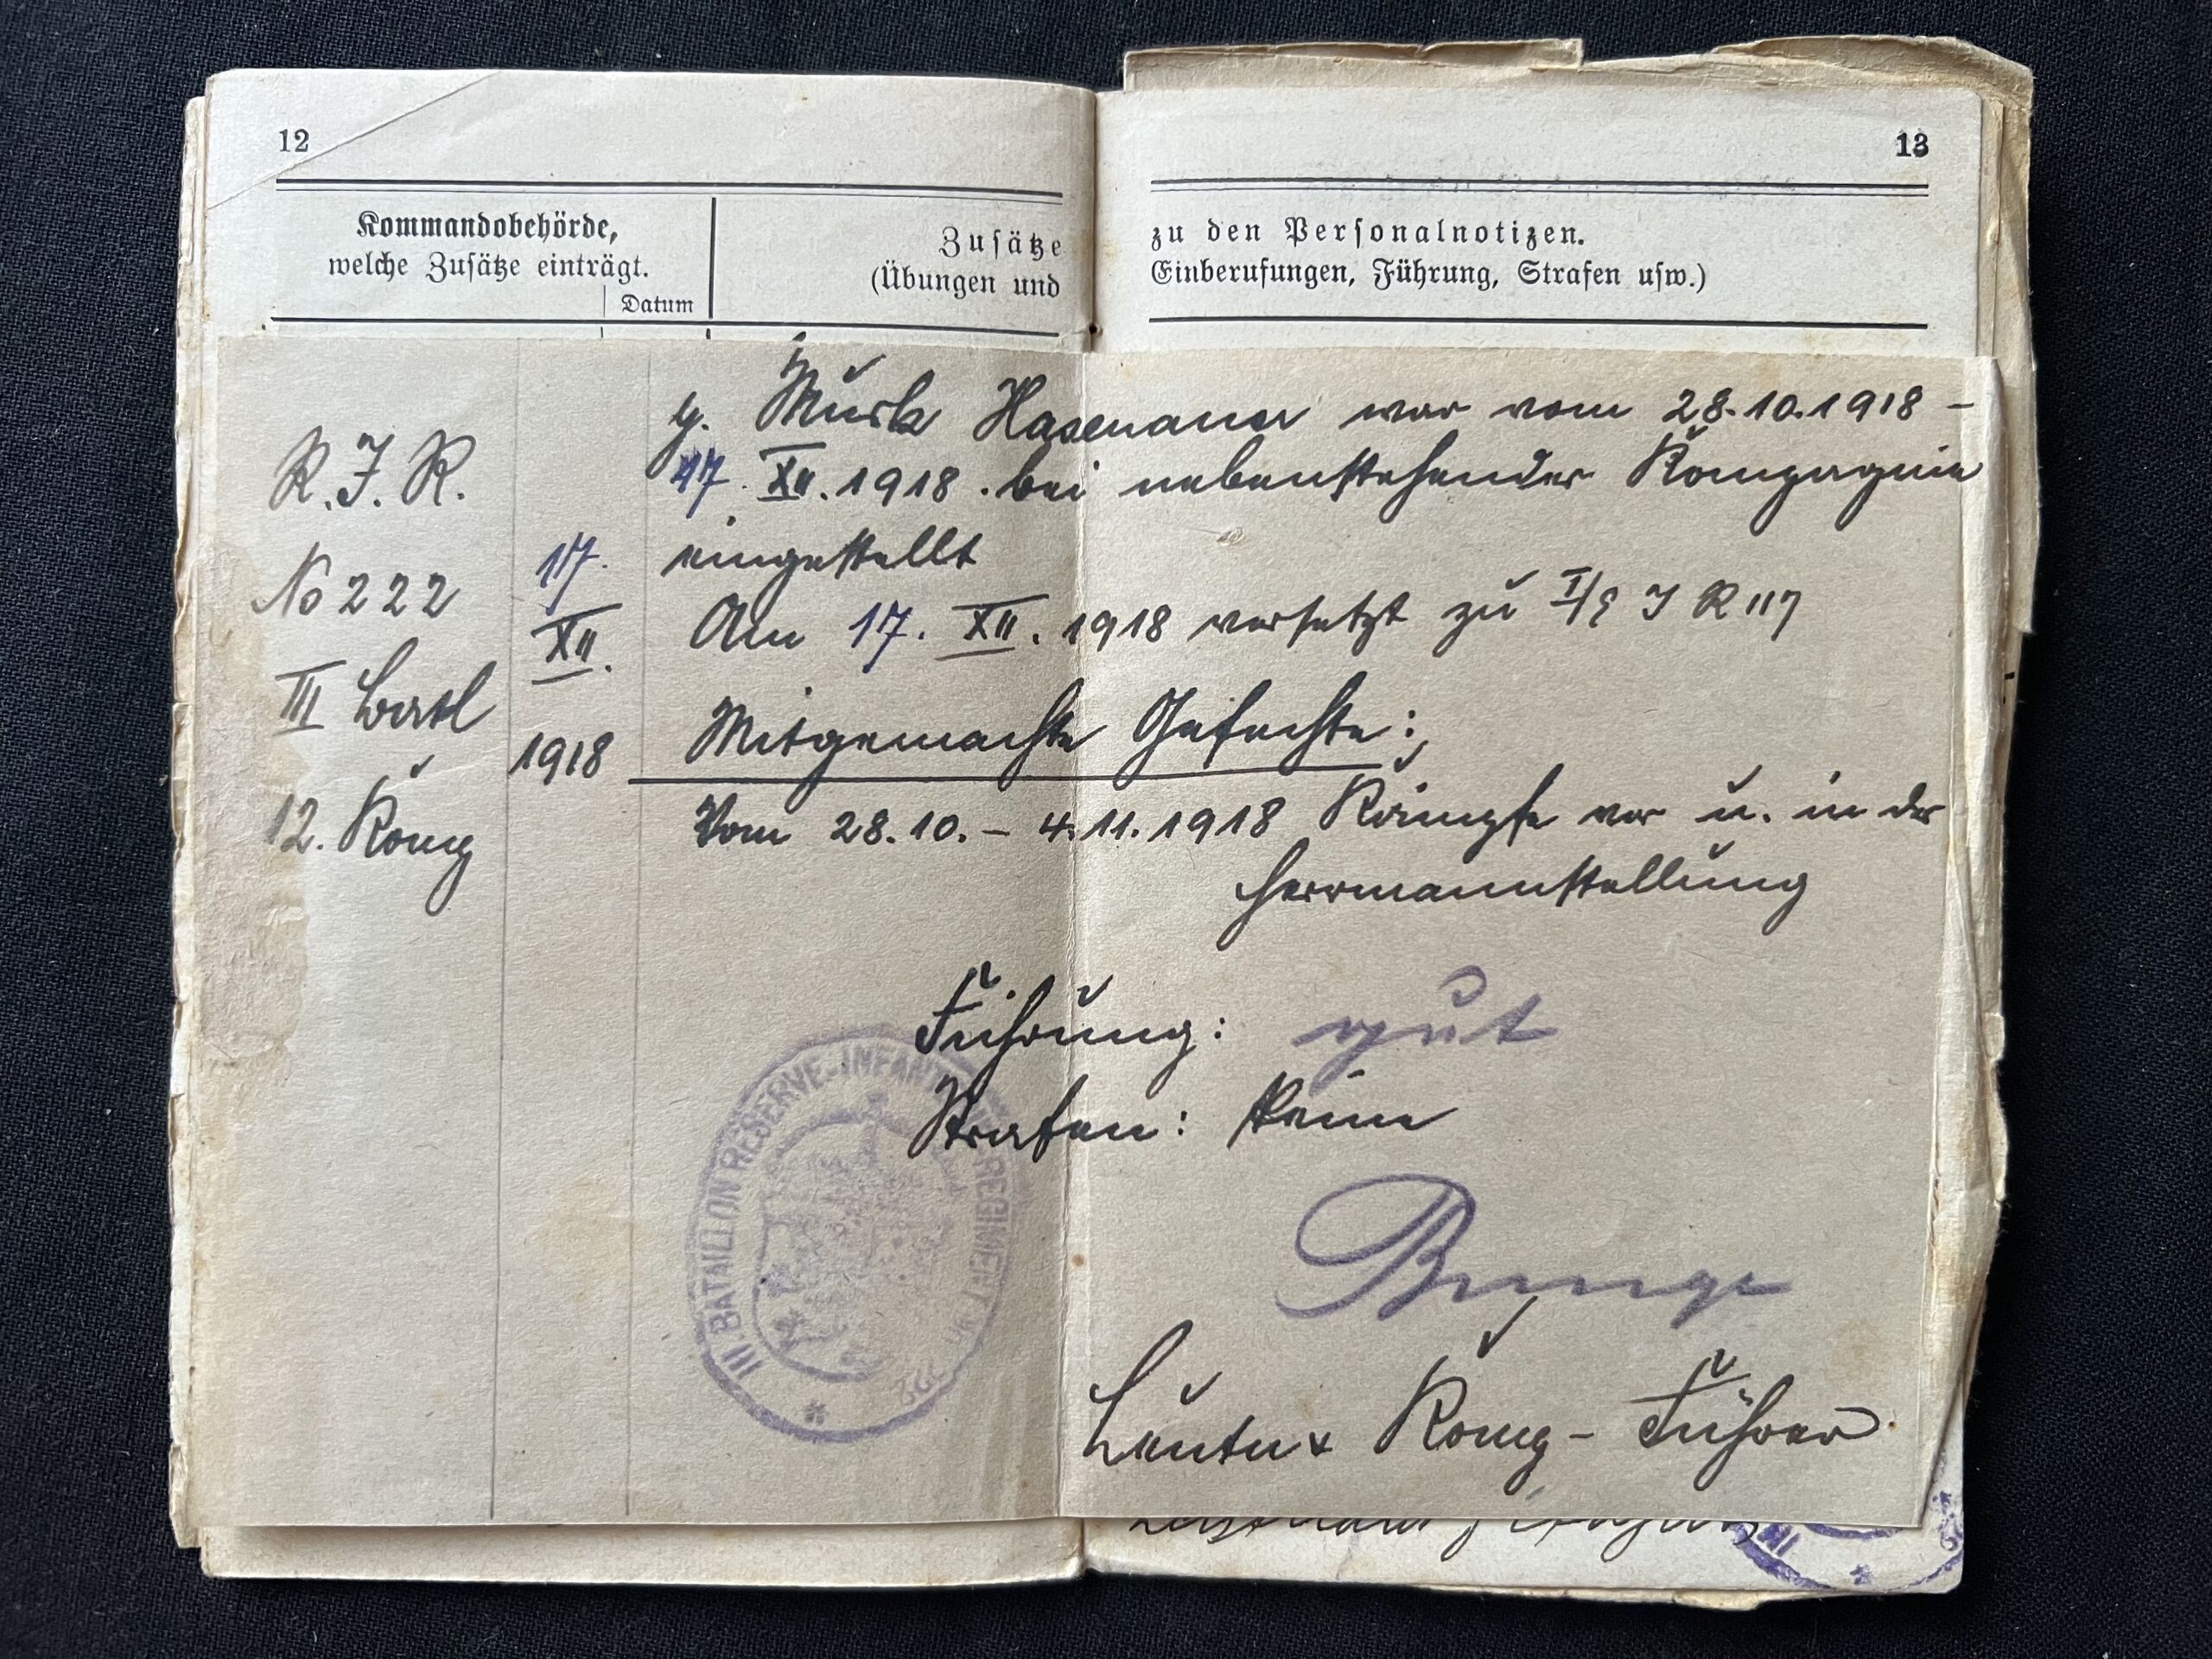 12
Kommandobehörde,
welche Zusätze einträgt.
Datum
Zusätze
(Übungen und
13
zu den Personalnotizen.
Einberufungen, Führung, Strafen usw.)
R. J. R.
No 222
III Batl
12. Komp
17.
XII.
1918
g. Musk war vom 28.10.1918 –
17. XII. 1918. bei nebenstehender Kompagnie
eingestellt
Am 17. XII. 1918 versetzt zu J R 117
Mitgemachte Gefechte:
Vom 28.10. – 4.11.1918 Kämpfe vor u. in der
Herrmannstellung
Führung: gut
Strafen: keine
Bunge
Leutn & Komp-Führer
III. BATAILLON RESERVE-INFANTERIE REGIMENT Nr. 222